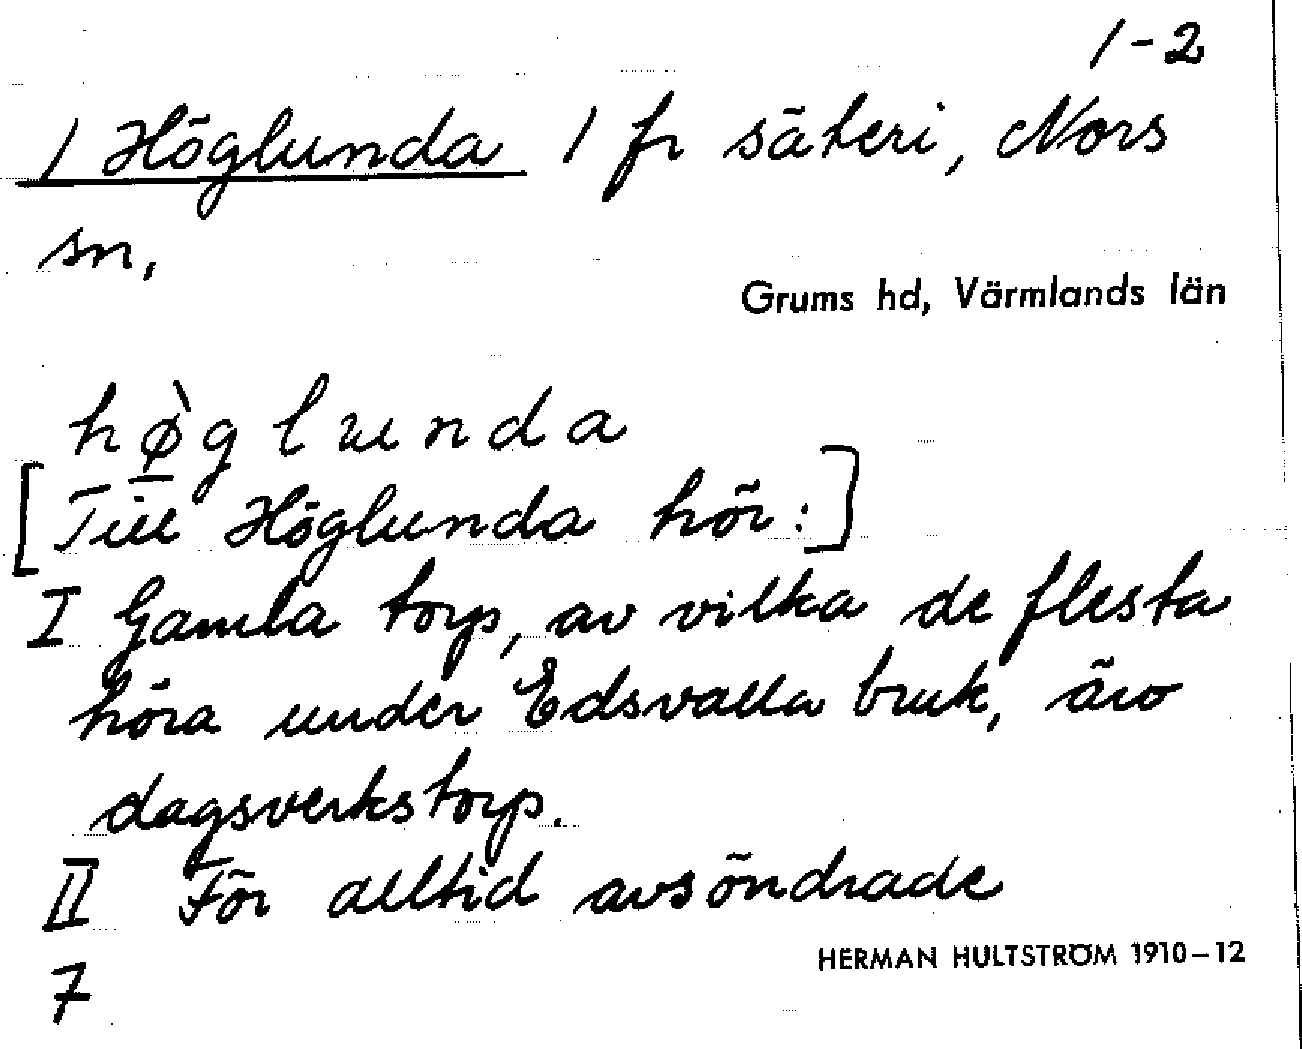 1-2
/ Höglunda / fr säteri, Nors
sn,
Grums hd, Värmlands län
hø̀glunda
[Till Höglunda hör:]
I Gamla torp, av vilka de flesta
höra under Edsvalla bruk, äro
dagsverkstorp.
II För alltid avsöndrade
HERMAN HULTSTRÖM 1910-12
7